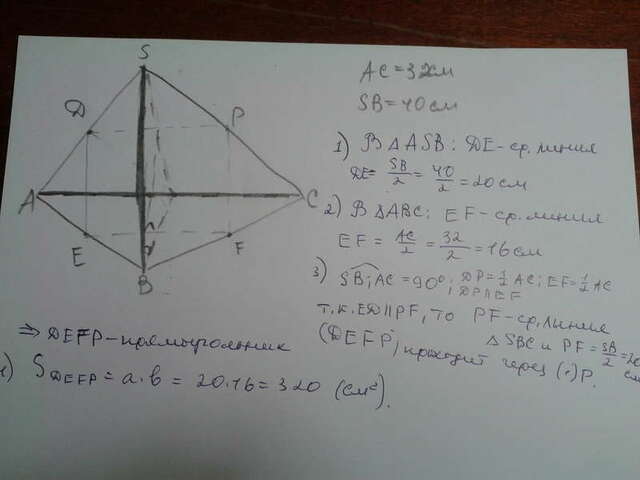 S
AC = 32см
SB = 40 см
D
P
1) В △ ASB: DE - ср. линия
DE = SB/2 = 40/2 = 20 см
A
C
2) В △ABC: EF - ср. линия
EF = AC/2 = 32/2 = 16 см
E
F
B
3) SB; AC = 90°; DP = 1/2 AC; EF = 1/2 AC
; DP || EF
т.к. ED || PF, то PF - ср. линия
△ SBC и PF = SB/2 = 20 см
(DEFP), проходит через (·) P.
⇒ DEFP - прямоугольник
4) S DEFP = a · b = 20 · 16 = 320 (см²).